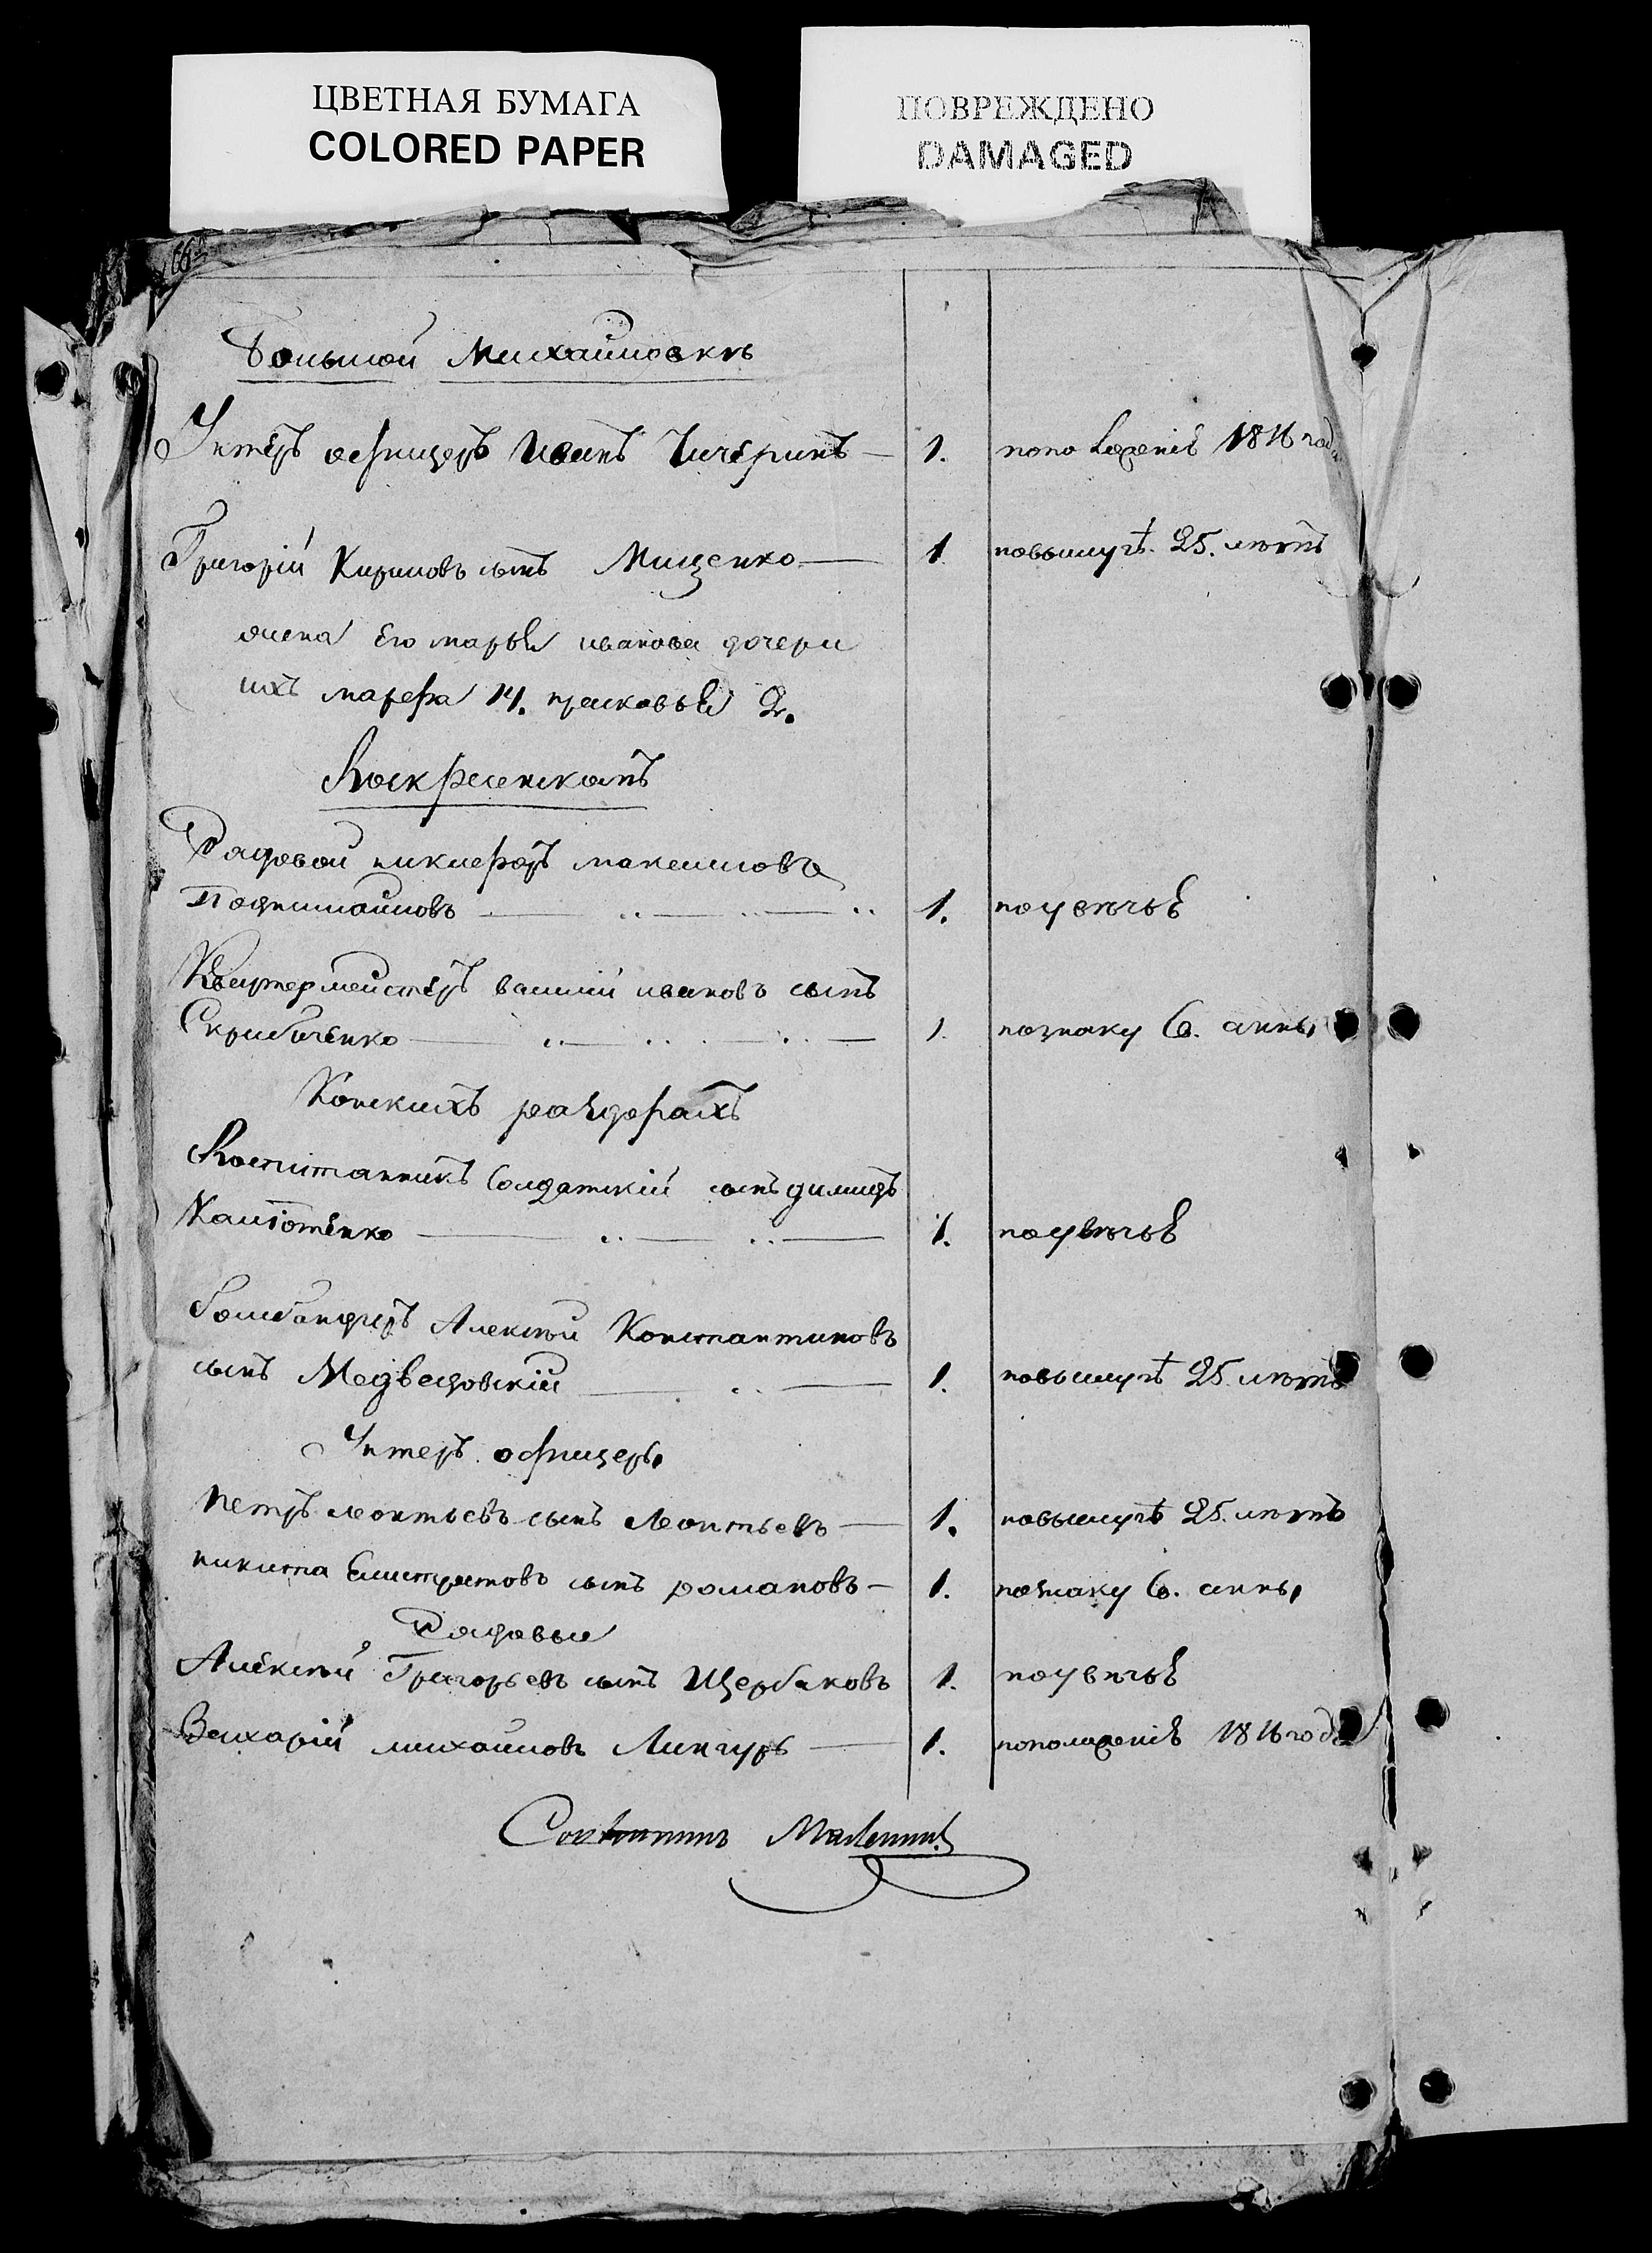 ЦВЕТНАЯ БУМАГА
COLORED PAPER
ПОВРЕЖДЕНО
DAMAGED
Большой Михайловкѣ
Унтеръ офицеръ Иванъ Чичеринъ — 1. поположенію 1816 года
Григорій Кириловъ сынъ Мищенко — 1 повыслугѣ 25. лѣтъ
жена его марья иванова дочери
ихъ марфа 14. прасковья 2.
Воскресенскомъ
Рядовой никифоръ максимовъ
Подмихайловъ — 1. поувѣчью
Квартермейстеръ василій ивановъ сынъ
Скрибченко — 1. познаку Св. анны
Конскихъ
Воспитанникъ Солдатскій сынъ демидъ
— 1. поувѣчью
Бомбандиръ Алексѣй Константиновъ
сынъ Медведовскій — 1. повыслугѣ 25 лѣтъ
Унтеръ офицеры
Петръ леонтьевъ сынъ Леонтьевъ — 1. повыслугѣ 25. лѣтъ
никита Елистратовъ сынъ романовъ — 1. познаку Св. анны
Рядовые
Алексѣй Григорьевъ сынъ Щербаковъ 1. поувѣчью
Захарій михайловъ Лингуръ — 1. поположенію 1816 года